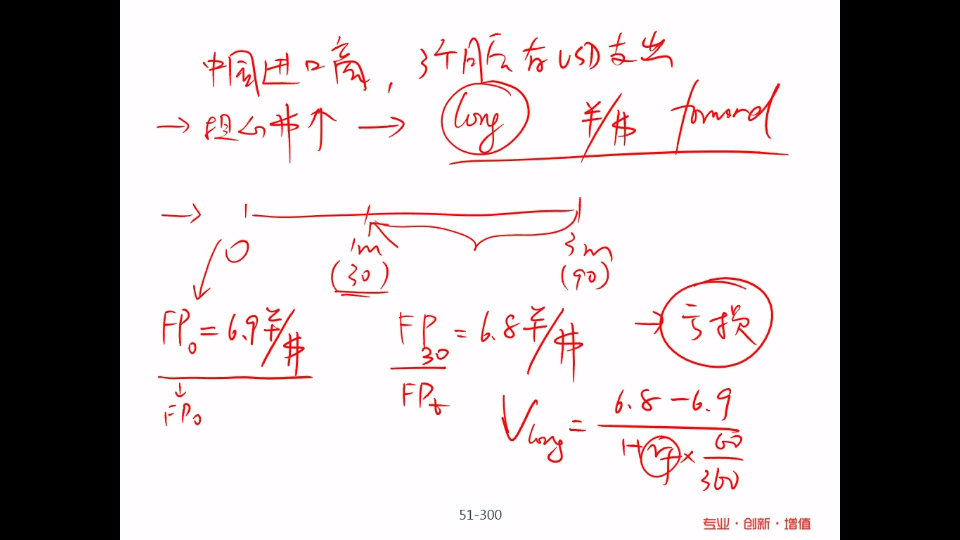 中国进口商，3个月后有USD支出
→ 担心$↑ → long ¥/$ forward
→ 0 1m 3m
(30) (90)
FP₀ = 6.9¥/$ FP₃₀ = 6.8¥/$ → 亏损
FP₀ FPₜ
V long = (6.8 - 6.9) / (1 + r¥ × 60/360)
51-300
专业·创新·增值